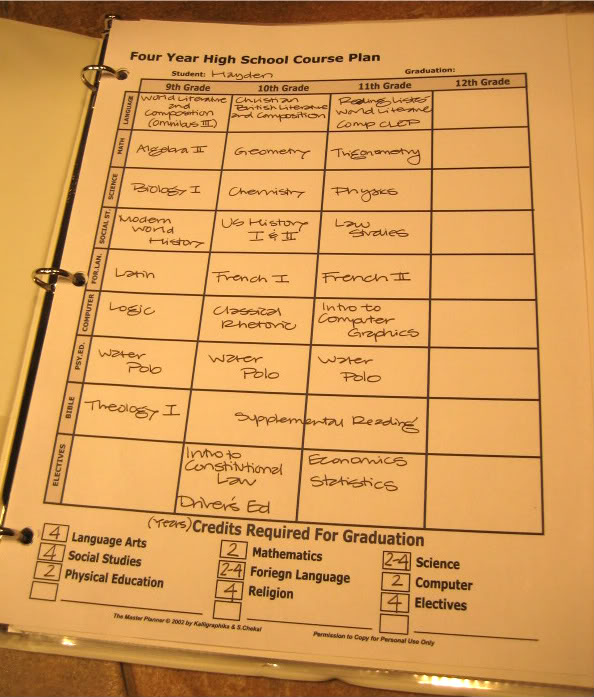 Four Year High School Course Plan
Student: Hayden Graduation:
9th Grade 10th Grade 11th Grade 12th Grade
LANGUAGE
World Literature
and
Composition
(Omnibus III)
Christian
British Literature
and Composition
Reading Lists
World Literature
Comp CLEP
MATH
Algebra II
Geometry
Trigonometry
SCIENCE
Biology I
Chemistry
Physics
SOCIAL ST.
Modern
World
History
US History
I & II
Law
Studies
FOR.LAN.
Latin
French I
French II
COMPUTER
Logic
Classical
Rhetoric
Intro to
Computer
Graphics
PSY.ED.
Water
Polo
Water
Polo
Water
Polo
BIBLE
Theology I
Supplemental Reading
ELECTIVES
Intro to
Constitutional
Law
Driver's Ed
Economics
Statistics
(Years) Credits Required For Graduation
4 Language Arts
4 Social Studies
2 Physical Education
2 Mathematics
2-4 Foriegn Language
4 Religion
2-4 Science
2 Computer
4 Electives
The Master Planner © 2002 by Kalligraphiks & S.Chekal
Permission to Copy for Personal Use Only